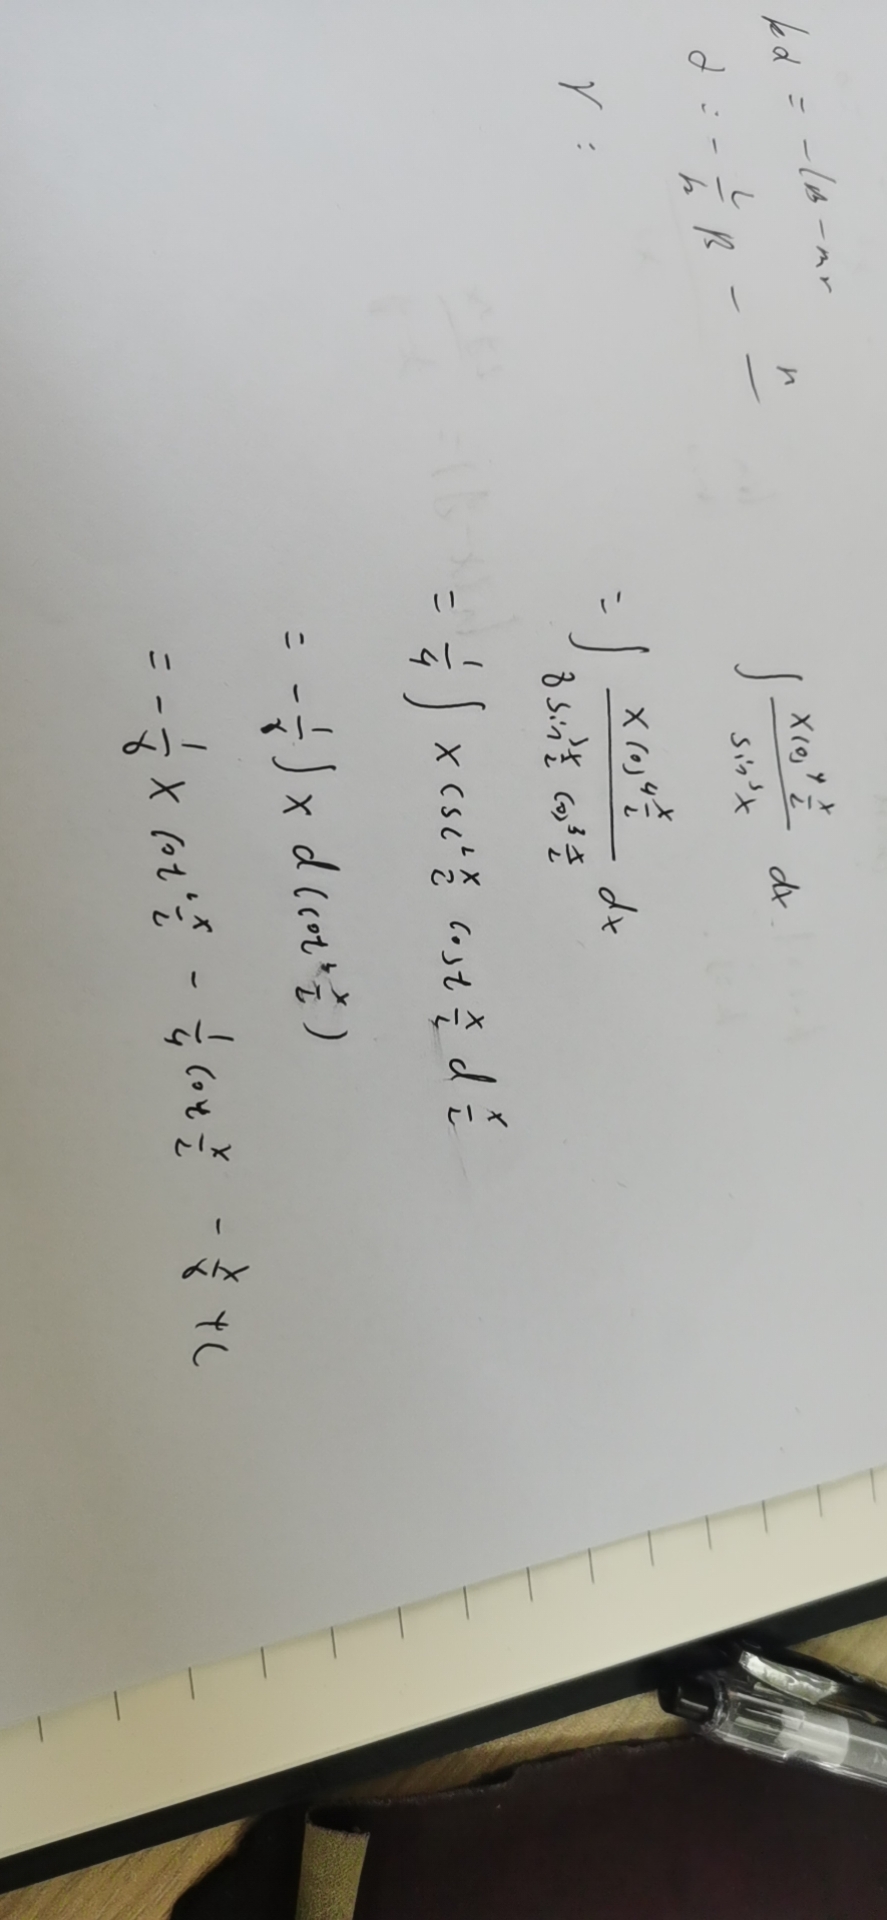 kα = -lβ - mr
α : - l/k β - —
r :
∫ x cos⁴ x/2 / sin³x dx
= ∫ x cos⁴ x/2 / 8 sin³ x/2 cos³ x/2 dx
= 1/4 ∫ x csc² x/2 cot x/2 d x/2
= - 1/8 ∫ x d (cot² x/2)
= - 1/8 x cot² x/2 - 1/4 cot x/2 - x/8 + C